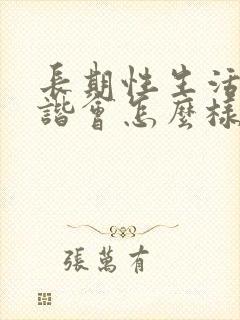 長期性生活
諧會怎麼樣
張萬有